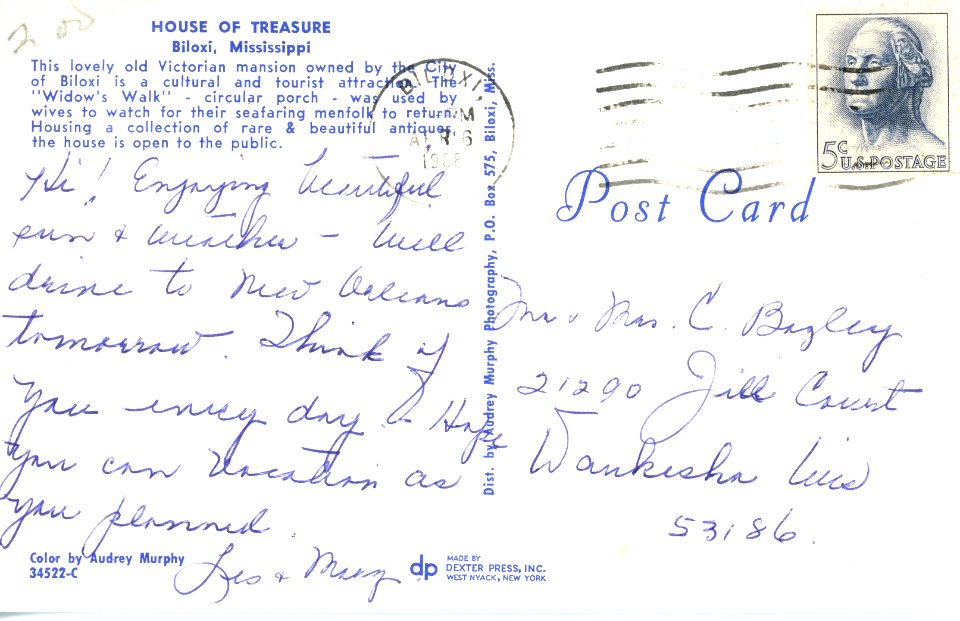 2 00
HOUSE OF TREASURE
Biloxi, Mississippi
This lovely old Victorian mansion owned by the City
of Biloxi is a cultural and tourist attraction. The
"Widow's Walk" - circular porch - was used by
wives to watch for their seafaring menfolk to return.
Housing a collection of rare & beautiful antiques,
the house is open to the public.
BILOXI,
M
APR 6
1968
5c U.S. POSTAGE
Post Card
Hi! Enjoying beautiful
sun & weather - Will
drive to New Orleans
tomorrow. Think of
you every day & Hope
you can vacation as
you planned.
Les & Mary
Dist. by Audrey Murphy Photography, P.O. Box 575, Biloxi, Miss.
Mr & Mrs. C. Bagley
21290 Jill Court
Waukesha Wis
53186.
Color by Audrey Murphy
34522-C
dp
MADE BY
DEXTER PRESS, INC.
WEST NYACK, NEW YORK